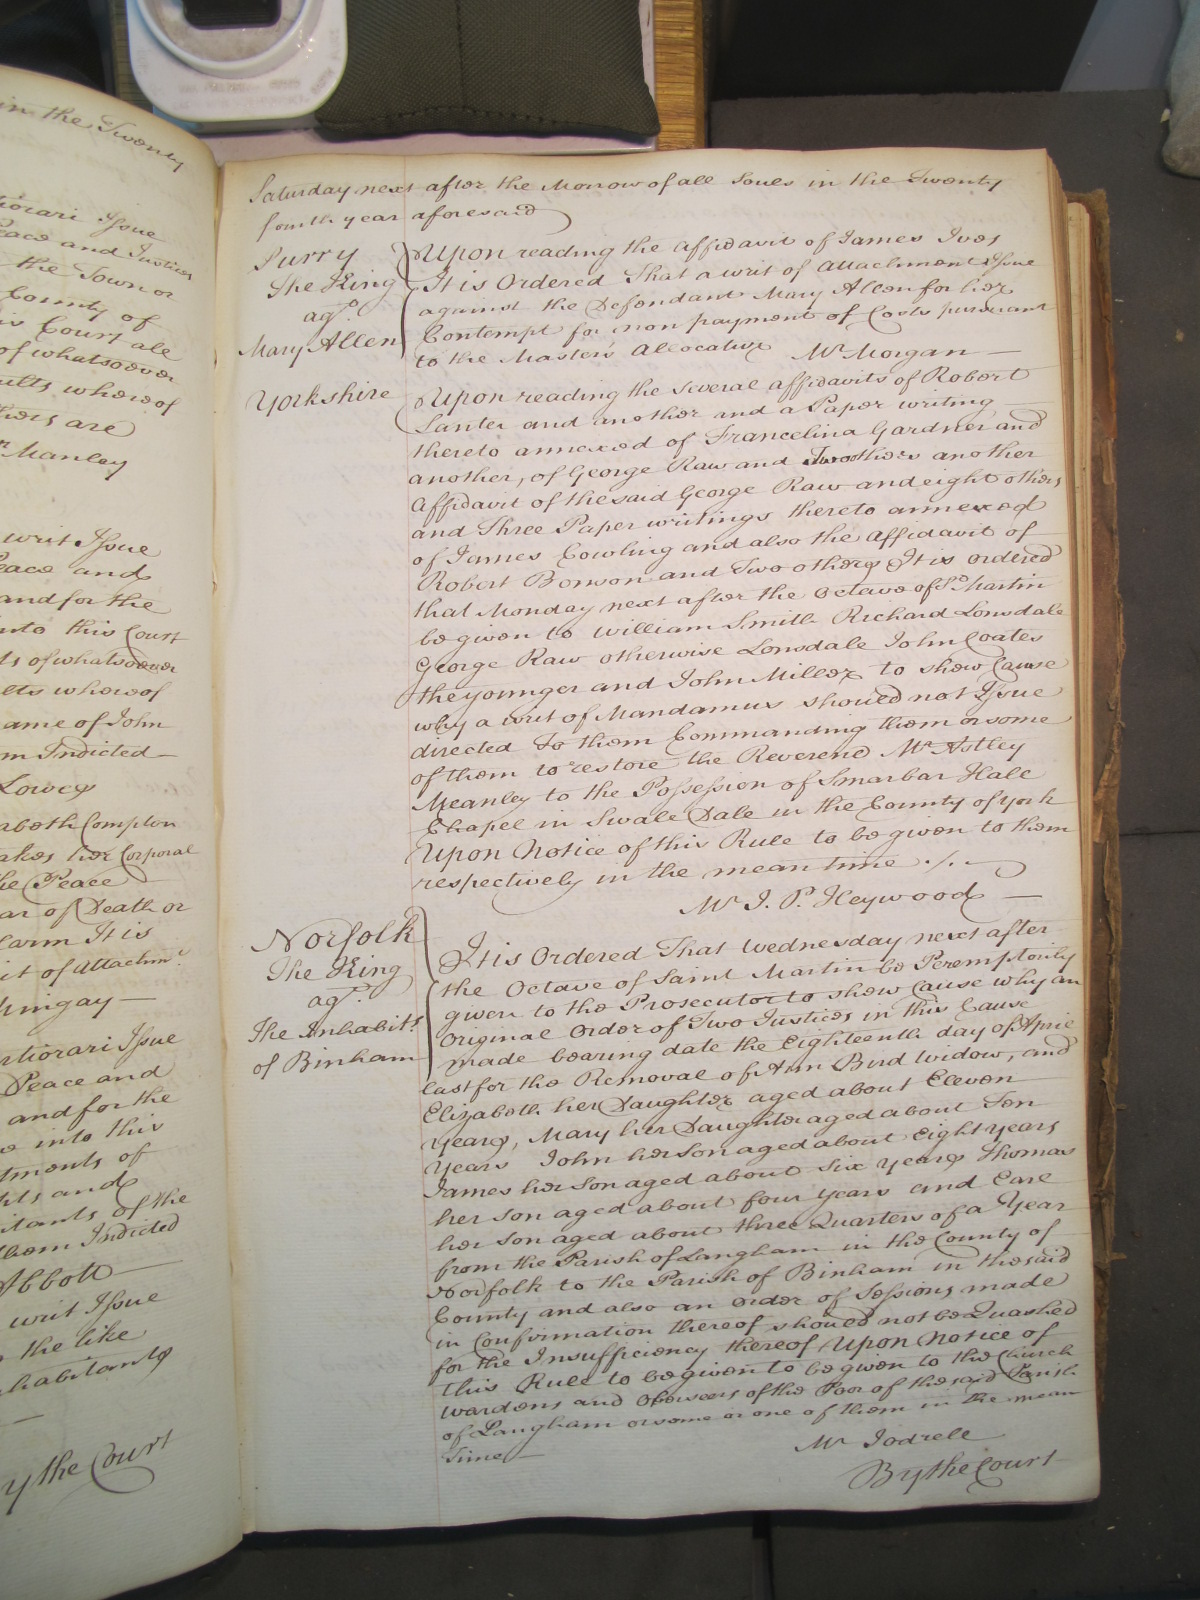 in the Twenty
Issue
Peace and Justices
the Town or
County of
his Court all
of whatsoever
whereof
others are
Manley
writ Issue
Peace and
and for the
into this Court
of whatsoever
whereof
name of John
Indicted
Lowes
Elizabeth Compton
takes her Corporal
the Peace
fear of Death or
harm It is
writ of Attachmt
Mingay
Certiorari Issue
Peace and
and for the
into this
and
of the
them Indicted
Abbott
writ Issue
the like
Inhabitants
By the Court
Saturday next after the Morrow of all Souls in the Twenty
fourth year aforesaid
Surry
The King
agt
Mary Allen
Upon reading the affidavit of James Ives
It is Ordered That a writ of Attachment Issue
against the Defendant Mary Allen for her
Contempt for non payment of Costs pursuant
to the Master's Allocatur Mr Morgan
Yorkshire
Upon reading the several affidavits of Robert
Santer and another and a Paper writing
thereto annexed of Francelina Gardner and
another, of George Raw and Two others another
Affidavit of the said George Raw and eight others
and Three Paper writings thereto annexed
of James Cowling and also the Affidavit of
Robert Bonson and Two others It is ordered
that Monday next after the Octave of St Martin
be given to William Smith Richard Lonsdale
George Raw otherwise Lonsdale John Coates
the younger and John Miller to shew Cause
why a writ of Mandamus should not Issue
directed to them Commanding them or some
of them to restore the Reverend Mr Astley
Meanley to the Possession of Smarbar Hall
Chapel in Swale Dale in the County of York
Upon Notice of this Rule to be given to them
respectively in the mean time ./.
Mr J. P. Heywood
Norfolk
The King
agt.
The Inhabits
of Binham
It is Ordered That Wednesday next after
the Octave of Saint Martin be Peremptorily
given to the Prosecutor to shew Cause why an
Original Order of Two Justices in this Cause
made bearing date the Eighteenth day of April
last for the Removal of Ann Bird Widow, and
Elizabeth her Daughter aged about Eleven
Years, Mary her Daughter aged about Ten
Years John her Son aged about Eight Years
James her Son aged about Six Years Thomas
her Son aged about four Years and Earl
her Son aged about three Quarters of a Year
from the Parish of Langham in the County of
Norfolk to the Parish of Binham in the said
County and also an Order of Sessions made
in Confirmation thereof should not be Quashed
for the Insufficiency thereof Upon Notice of
this Rule to be given to be given to the Church
wardens and Overseers of the Poor of the said Parish
of Langham or some or one of them in the mean
time
Mr Jodrell
By the Court